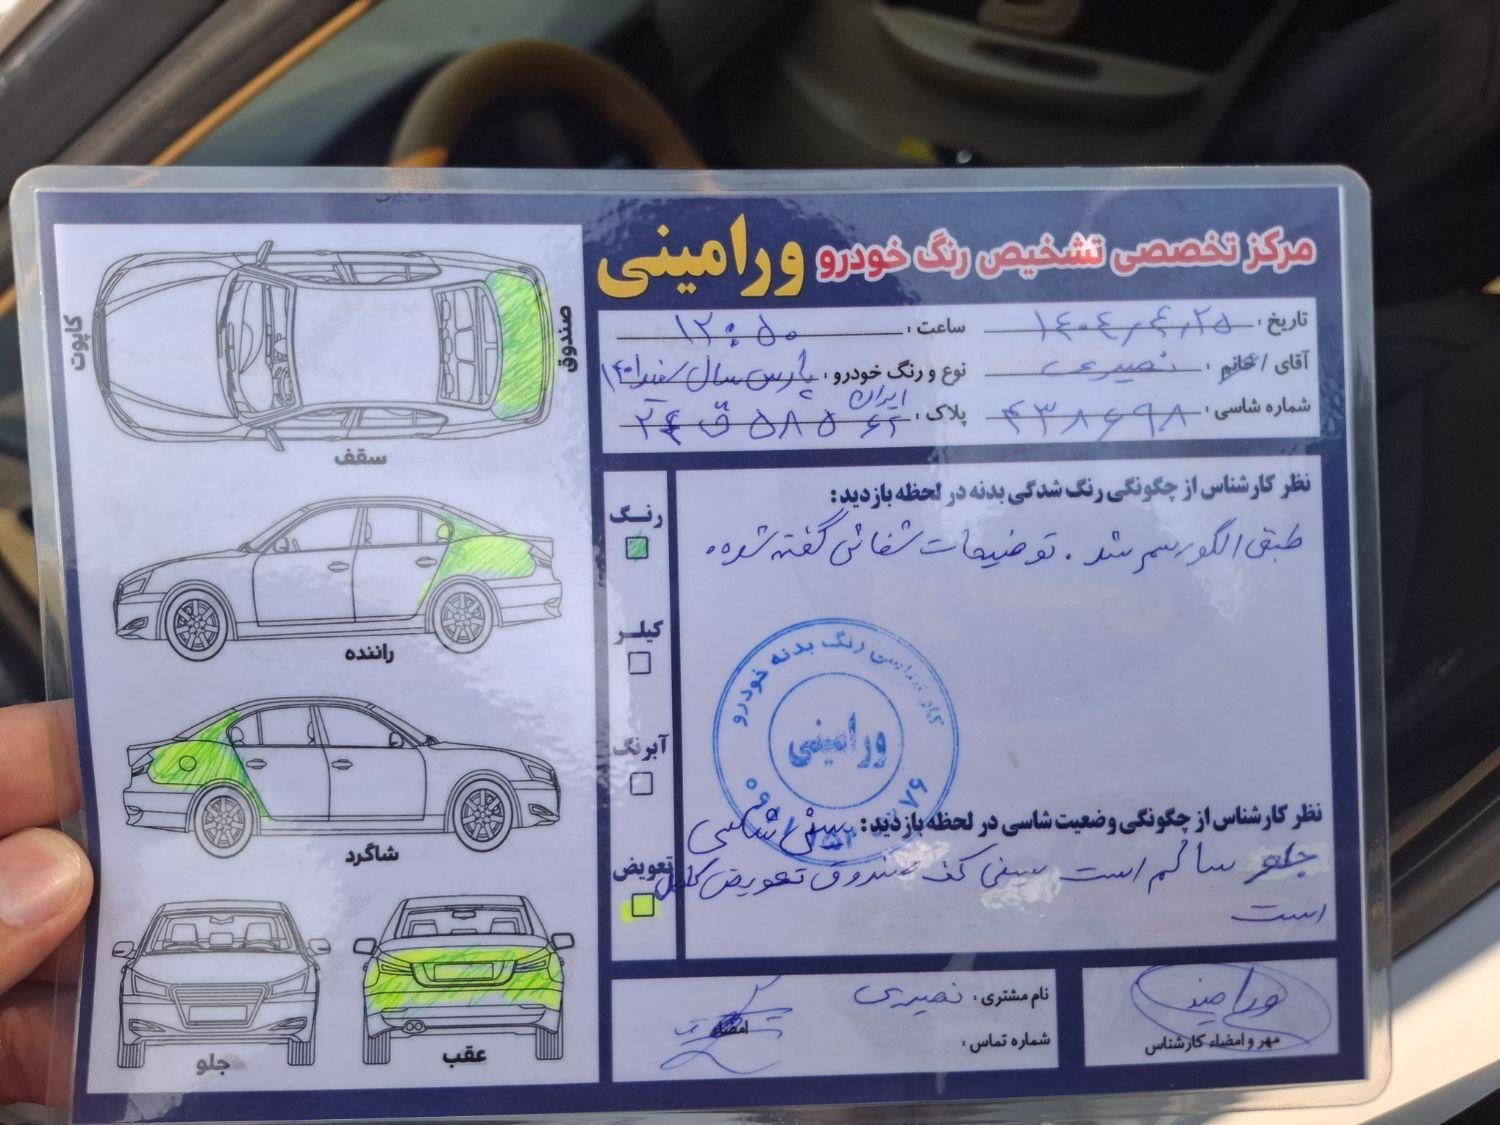 مرکز تخصصی تشخیص رنگ خودرو ورامینی
تاریخ : ۱۴۰۴٫۴٫۲۵ ساعت : ۱۲:۵۰
آقای / خانم : نصیری نوع و رنگ خودرو : پارس سال سفید ۱۴۰۱
شماره شاسی : ۴۳۸۶۹۸ پلاک : ایران
۲۴ ق ۵۸۵
نظر کارشناس از چگونگی رنگ شدگی بدنه در لحظه بازدید:
طبق الگو رسم شد . توضیحات شفائی گفته شده .
رنگ
کیلر
آبرنگ
تعویض
کارشناسی رنگ بدنه خودرو
ورامینی
نظر کارشناس از چگونگی وضعیت شاسی در لحظه بازدید: سینی شاسی
جلو سالم است سینی کف صندوق تعویض کامل
است
نام مشتری : نصیری
شماره تماس :
امضاء
ورامینی
مهر و امضاء کارشناس
کاپوت
صندوق
سقف
راننده
شاگرد
جلو
عقب